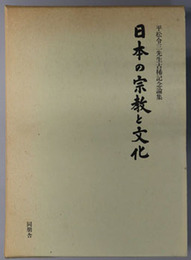 平松令三先生古稀記念論集
日本の宗教と文化
同朋舎